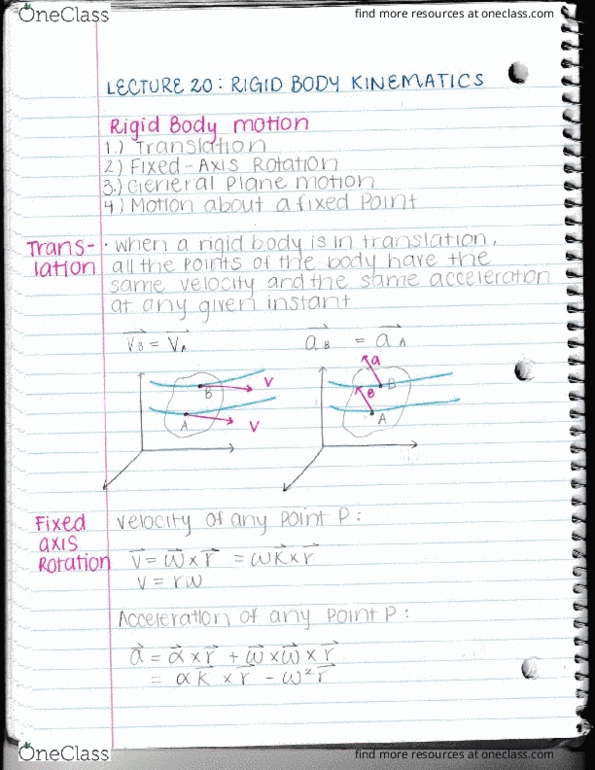 OneClass
find more resources at oneclass.com
LECTURE 20: RIGID BODY KINEMATICS
Rigid Body motion
1.) Translation
2) Fixed-Axis Rotation
3.) General Plane motion
4) Motion about a fixed Point
Trans-
lation
· when a rigid body is in translation,
all the points of the body have the
same velocity and the same acceleration
at any given instant
v⃗B = v⃗A
a⃗B = a⃗A
B
V
A
V
a
B
a
A
Fixed
axis
Rotation
Velocity of any point P:
v⃗ = ω⃗ x r⃗ = ωk⃗ x r⃗
v = rω
Acceleration of any point P:
a⃗ = α⃗ x r⃗ + ω⃗ x ω⃗ x r⃗
= αk⃗ x r⃗ - ω²r⃗
OneClass
find more resources at oneclass.com